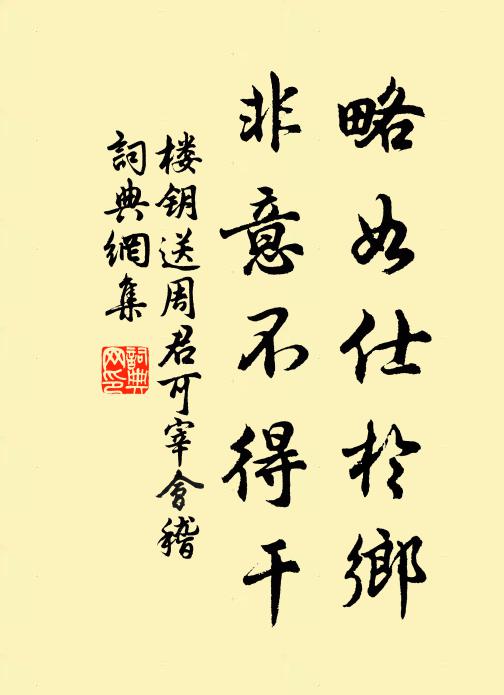 略如仕於鄉
非意不得干
楼钥送周君可宰會稽
詞典網集
詞典網印